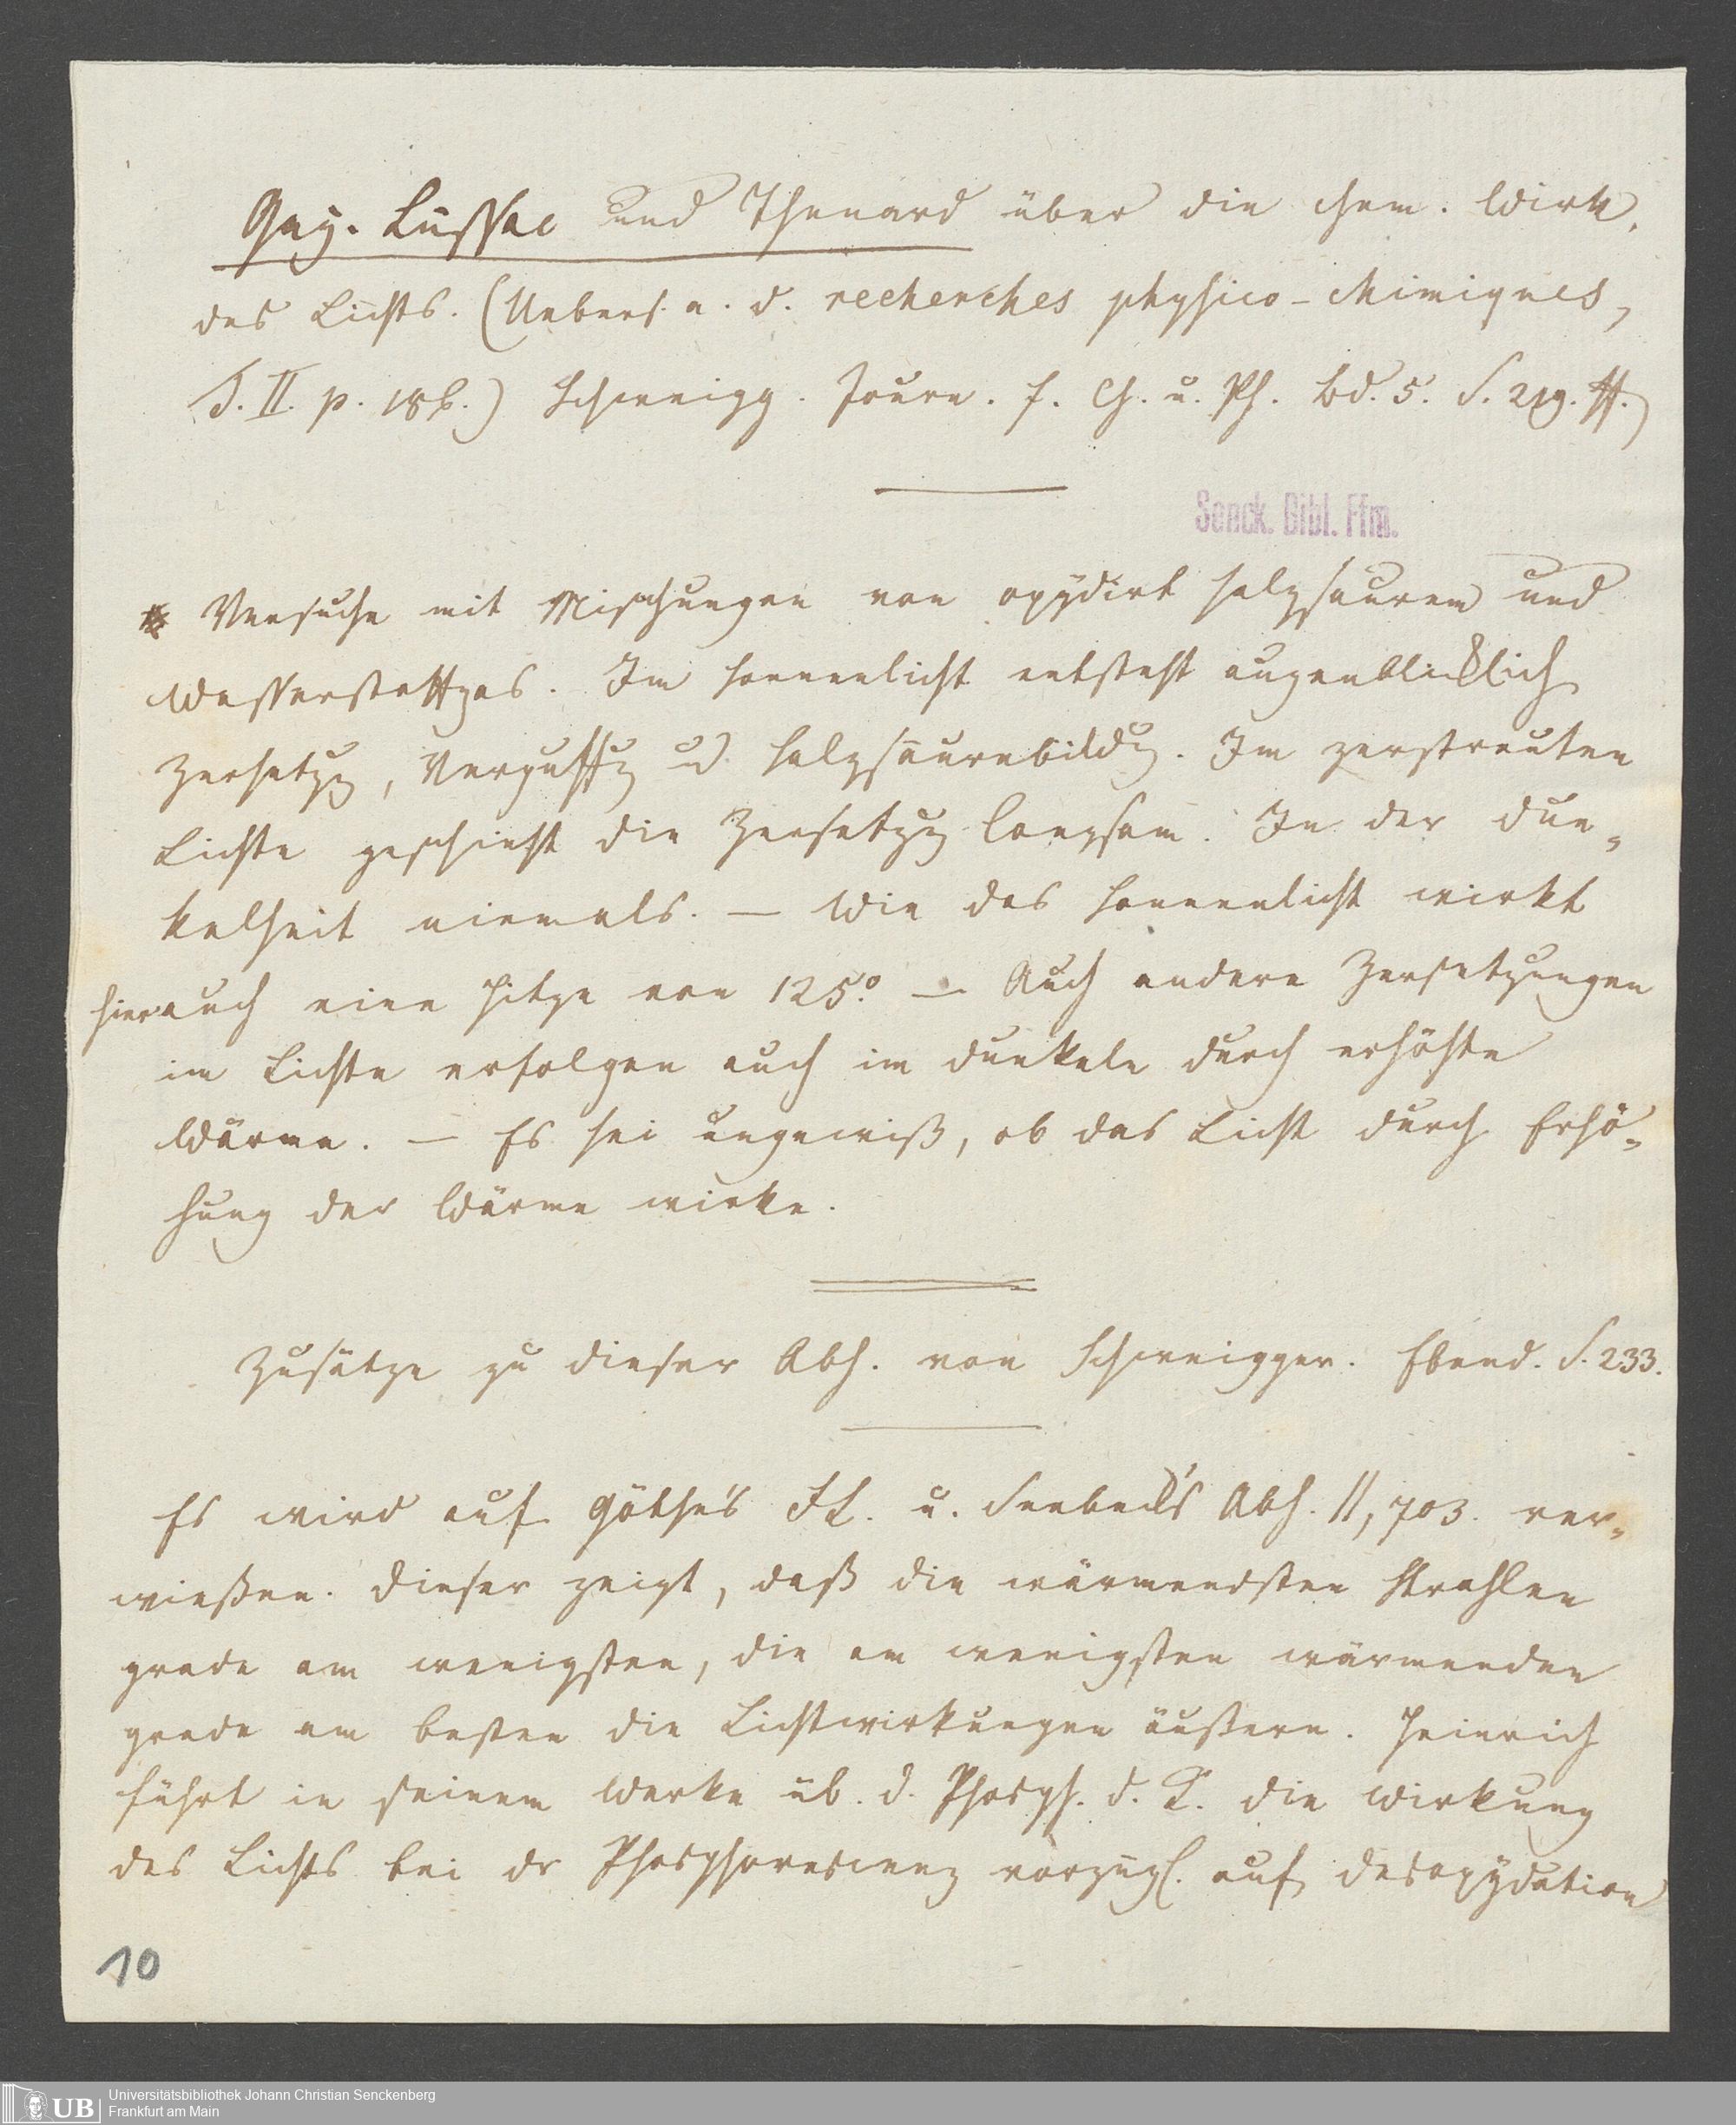 Gay-Lussac und Thenard über die chem. Wirk.
des Lichts. (Uebers. a. d. recherches physico-chimiques,
T. II. p. 186.) Schweigg. Journ. f. Ch. u. Ph. Bd. 5. S. 219. ff.)
Senck. Bibl. Ffm.
Versuche mit Mischungen von oxydirt salzsaurem und
Wasserstoffgas. Im Sonnenlicht entsteht augenblicklich
Zersetzg, Verpuffg ud Salzsäurebildg. Im zerstreuten
Lichte geschieht die Zersetzg langsam. In der Dun-
kelheit niemals. — Wie das Sonnenlicht wirkt
hier auch eine Hitze von 125°. — Auch andere Zersetzungen
im Lichte erfolgen auch im dunkeln durch erhöhte
Wärme. — Es sei ungewiß, ob das Licht durch Erhö-
hung der Wärme wirke.
Zusätze zu dieser Abh. von Schweigger. Ebend. S. 233.
Es wird auf Göthe's FL. u. Seebeck's Abh. II, 703. ver-
wießen. Dieser zeigt, daß die wärmendsten Strahlen
grade am wenigsten, die am wenigsten wärmenden
grade am besten die Lichtwirkungen äußern. Heinrich
führt in seinem Werke üb. d. Phosph. d. K. die Wirkung
des Lichts bei dr Phosphorescenz vorzügl. auf Desoxydation
10
UB
Universitätsbibliothek Johann Christian Senckenberg
Frankfurt am Main